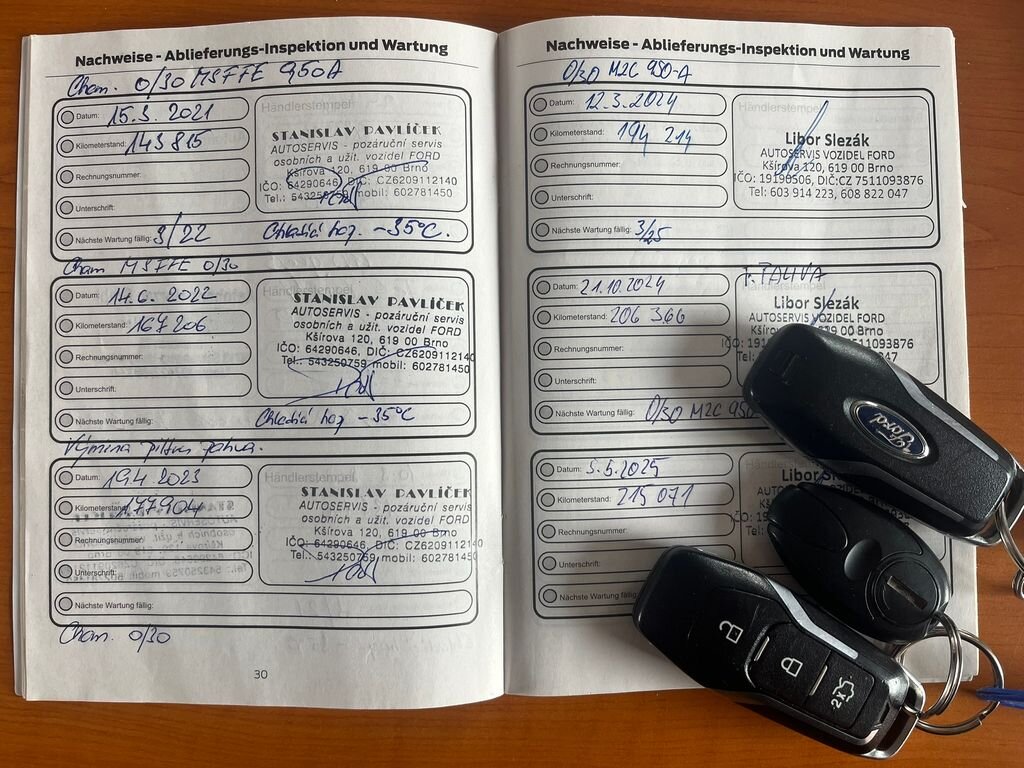 Nachweise - Ablieferungs-Inspektion und Wartung
Cham. 0/30 MSFFE 950A
Datum: 15.3. 2021
Kilometerstand: 143 815
Rechnungsnummer:
Unterschrift:
Nächste Wartung fällig: 3/22
Händlerstempel
STANISLAV PAVLÍČEK
AUTOSERVIS - pozáruční servis
osobních a užit. vozidel FORD
Kšírova 120, 619 00 Brno
IČO: 64290646, DIČ: CZ6209112140
Tel.: 543250759 mobil: 602781450
Chladící kap. -35°C.
Cham MSFFE 0/30
Datum: 14.6. 2022
Kilometerstand: 167 206
Rechnungsnummer:
Unterschrift:
Nächste Wartung fällig:
STANISLAV PAVLÍČEK
AUTOSERVIS - pozáruční servis
osobních a užit. vozidel FORD
Kšírova 120, 619 00 Brno
IČO: 64290646, DIČ: CZ6209112140
Tel.: 543250759 mobil: 602781450
Chladící kap -35°C
Výměna filtru paliva.
Datum: 19.4 2023
Kilometerstand: 177 904
Rechnungsnummer:
Unterschrift:
Nächste Wartung fällig:
Händlerstempel
STANISLAV PAVLÍČEK
AUTOSERVIS - pozáruční servis
osobních a užit. vozidel FORD
Kšírova 120, 619 00 Brno
IČO: 64290646, DIČ: CZ6209112140
Tel.: 543250759 mobil: 602781450
Cham. 0/30
30
Nachweise - Ablieferungs-Inspektion und Wartung
0/30 M2C 950-A
Datum: 12.3.2024
Kilometerstand: 194 214
Rechnungsnummer:
Unterschrift:
Nächste Wartung fällig: 3/25
Händlerstempel
Libor Slezák
AUTOSERVIS VOZIDEL FORD
Kšírova 120, 619 00 Brno
IČO: 19199506, DIČ:CZ 7511093876
Tel: 603 914 223, 608 822 047
Datum: 21.10.2024
Kilometerstand: 206 366
Rechnungsnummer:
Unterschrift:
Nächste Wartung fällig: 0/30 M2C 950
F. PALIVA
Libor Slezák
AUTOSERVIS VOZIDEL FORD
Kšírova 120, 619 00 Brno
Datum: 5.5.2025
Kilometerstand: 215 071
Rechnungsnummer:
Unterschrift:
Nächste Wartung fällig:
Händlerstempel
Libor
Ford
2X